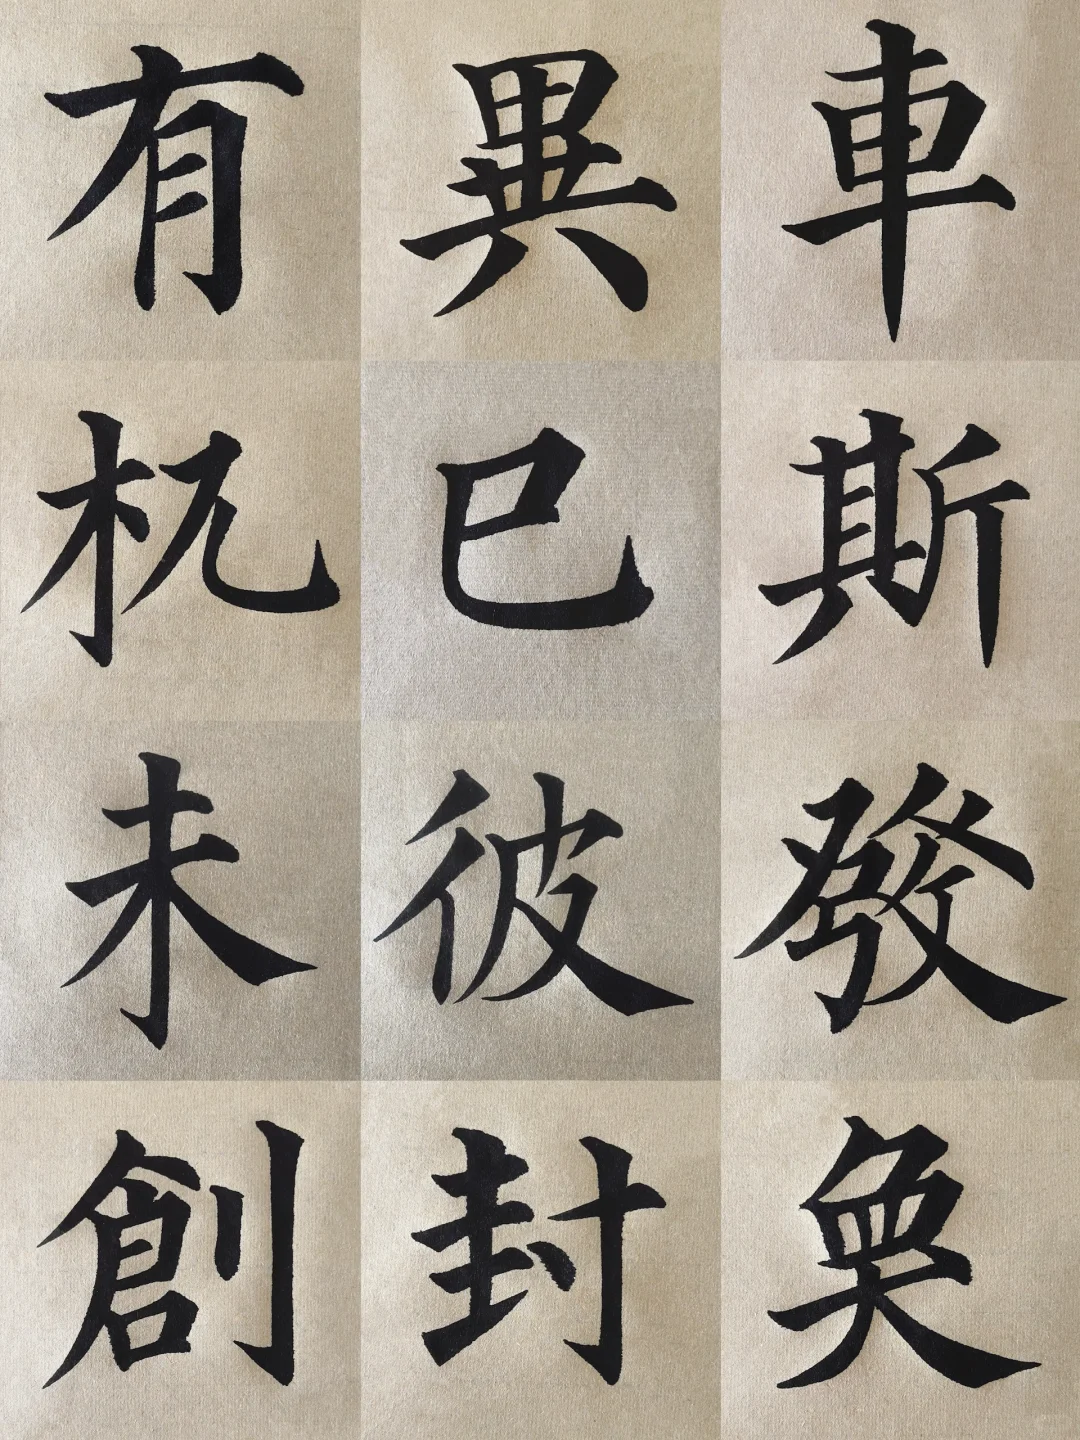 有異車
杌巳斯
未彼發
創封奐